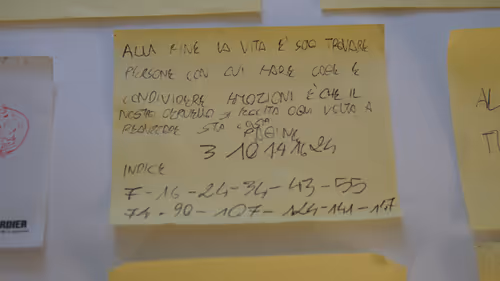 ALLA FINE LA VITA È SOLO TROVARE
PERSONE CON CUI FARE COSE E
CONDIVIDERE EMOZIONI È CHE IL
NOSTRO CERVELLO SI OGNI VOLTA A
STA COSA
PAGINE
3 10 14 16 24
INDICE
7-16-24-34-43-55
74-90-107-124-141-147
RDIER
AL
TI